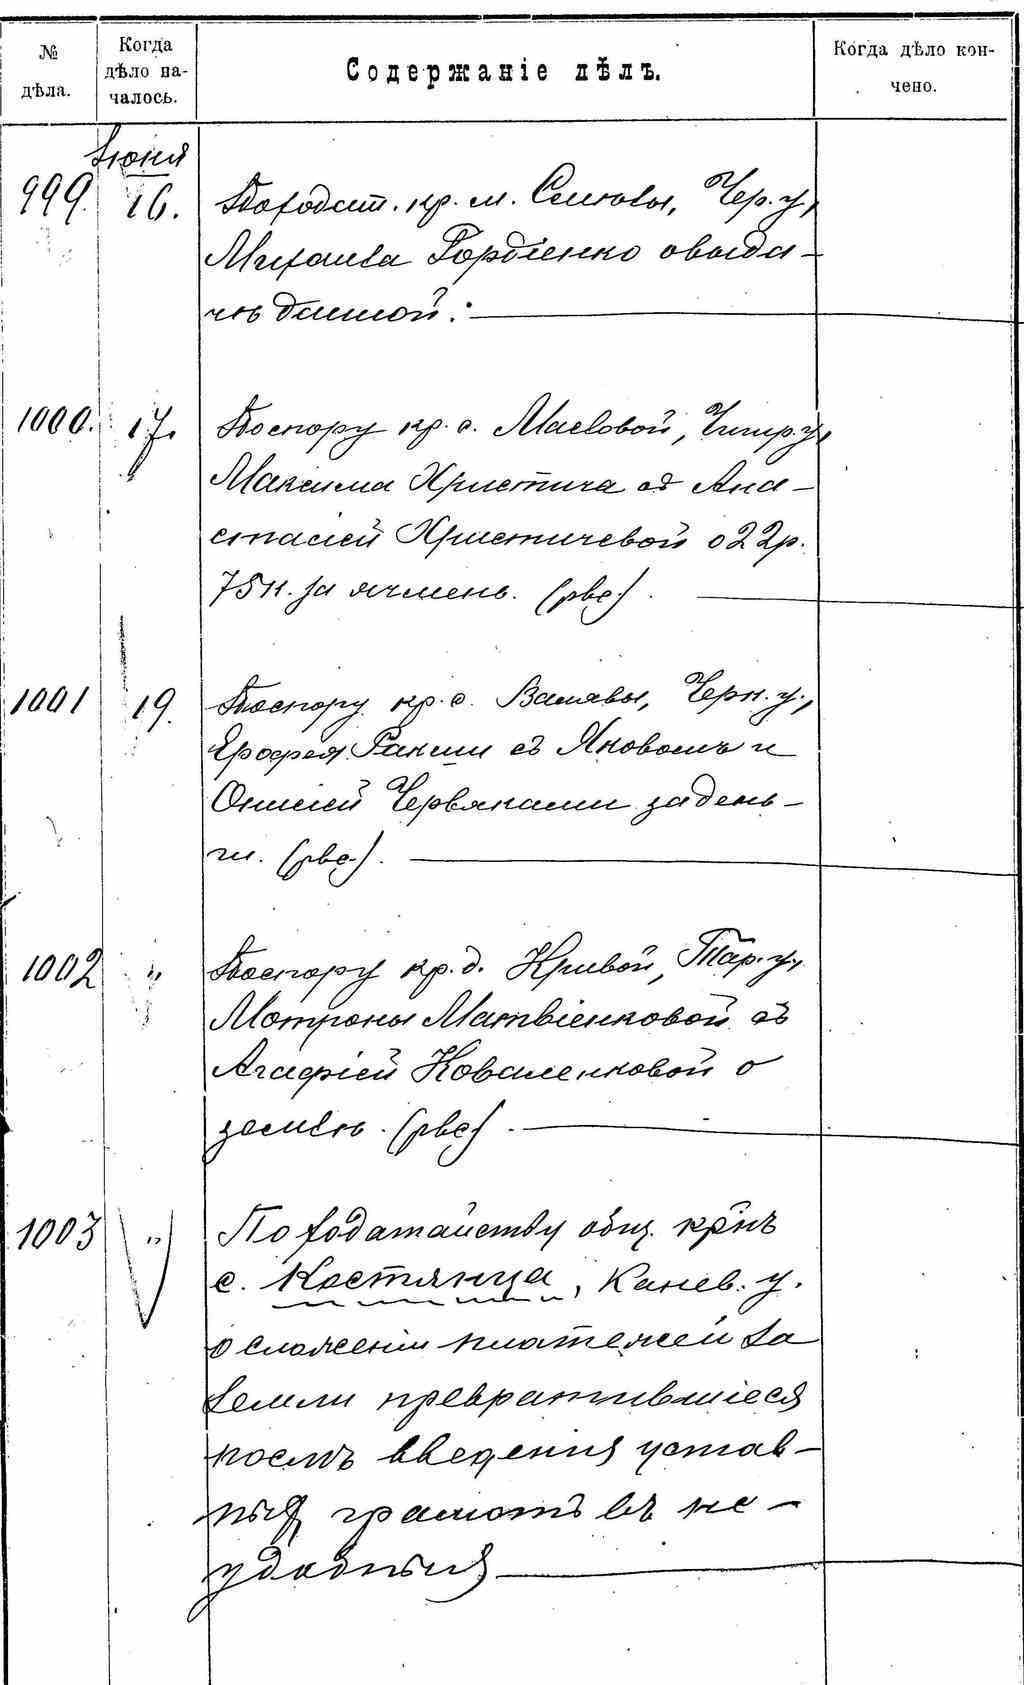 № дѣла.
Когда дѣло на-
чалось.
Содержаніе дѣлъ.
Когда дѣло кон-
чено.
Іюня
999. 16. По ходат. кр. м. Смѣлы, Чер. у,
Михаила Гордіенко о выда-
чѣ данной.
1000. 17. По спору кр. с. Маслово́й, Чигир. у,
Максима Христича съ Ана-
стасіей Христичевой о 22 р.
75 к. за ячмень. (рвс.).
1001 19. По спору кр. с. Валявы, Черк. у.,
Ерофея Ракши съ Яковомъ и
Онисіей Червяками за день-
ги. (рвс.).
1002 " По спору кр. д. Кривой, Тар. у.,
Мотроны Матвіенковой съ
Агафіей Коваленковой о
землѣ. (рвс).
1003 " По ходатайству общ. кр-нъ
с. Костянца, Канев. у.
о сложеніи платежей за
земли превратившіеся
послѣ введенія устав-
ныхъ грамотъ въ не-
удобныя